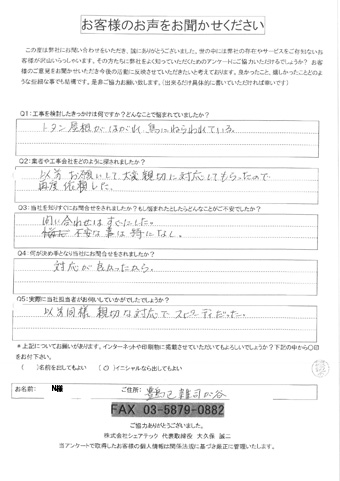 お客様のお声をお聞かせください
この度は弊社にお問い合わせをいただき、誠にありがとうございました。世の中には弊社の存在やサービスをご存知ないお
客様が沢山いらっしゃいます。その方たちに弊社をよく知っていただくためのアンケートにご協力いただけるでしょうか？ お客
様のご意見をお聞かせいただき今後の活動に反映させていただきたいと考えております。良かったこと、嬉しかったことどのよ
うな些細な事でも結構です。是非ご協力お願い致します。(出来るだけ具体的に書いていただければ幸いです)
Q1:工事を検討したきっかけは何ですか？どんなことで悩まれていましたか？
トタン屋根がはがれ、鳥にねらわれている。
Q2:業者や工事会社をどのように探されましたか？
以前お願いして大変親切に対応してもらったので
再度依頼した。
Q3:当社を知りすぐにお問合せをされましたか？もし悩まれたとしたらどんなことがご不安でしたか？
問い合わせはすぐにした。
不安な事は特になし。
Q4:何が決め手となり当社にお問合せをされましたか？
対応が良かったから。
Q5:実際に当社担当者がお伺いしていかがでしたでしょうか？
以前同様 親切な対応でスピーディだった。
＊上記についてお願いがあります。インターネットや印刷物に掲載させていただいてもよろしいでしょうか？下記の中から○印
をお付け下さい。
( )名前を出してもよい (○)イニシャルなら出してもよい
お名前: N様 ご住所: 豊島区雑司が谷
FAX 03-5879-0882
ご協力ありがとうございました。
株式会社シェアテック 代表取締役 大久保 誠二
当アンケートで取得したお客様の個人情報は関係法規に基づき厳正に管理いたします。